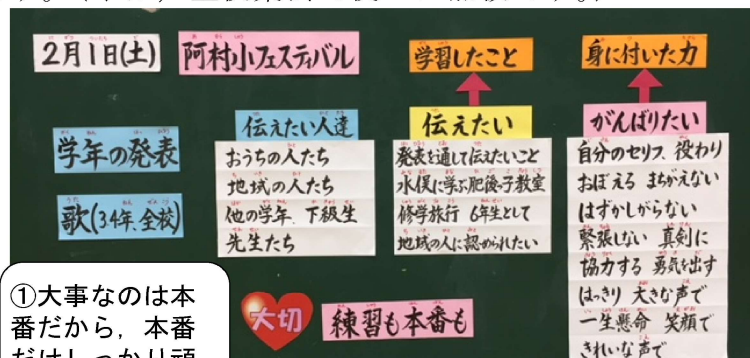 2月1日(土)
阿村小フェスティバル
学習したこと
身に付いた力
学年の発表
歌(3.4年、全校)
伝えたい人達
おうちの人たち
地域の人たち
他の学年、下級生
先生たち
伝えたい
発表を通して伝えたいこと
水俣に学ぶ肥後っ子教室
修学旅行 6年生として
地域の人に認められたい
がんばりたい
自分のセリフ、役わり
おぼえる まちがえない
はずかしがらない
緊張しない 真剣に
協力する 勇気を出す
はっきり 大きな声で
一生懸命 笑顔で
きれいな声で
大切
練習も本番も
①大事なのは本
番だから，本番